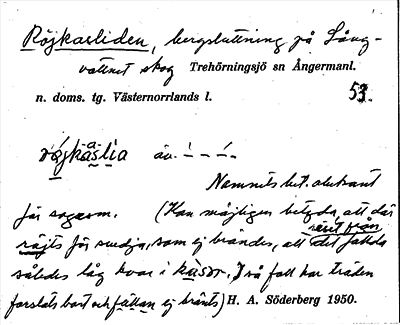 Röjkasliden, bergsluttning på Lång-
vattnet skog Trehörningsjö sn Ångermanl.
n. doms. tg. Västernorrlands l.
53.
äv.
Namnets bet. obekant
för sagesm. (Kan möjligen betyda, att där
röjts för svedja, som ej brändes, att det fällda
rört från
således låg kvar i kasar. I så fall har träden
forslats bort och fällan ej bränts) H. A. Söderberg 1950.